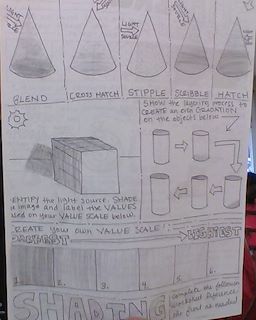 LIGHT
SOURCE
BLEND
CROSS HATCH
STIPPLE
SCRIBBLE
HATCH
SHOW the layering process to
CREATE an even GRADATION
on the objects below
IDENTIFY the light source. SHADE
the image and label the VALUES
used on your VALUE SCALE below.
CREATE YOUR OWN VALUE SCALE!
DARKEST
LIGHTEST
1.
2.
3.
4.
5.
6.
SHADING
Complete the following
worksheet. Reference
as needed